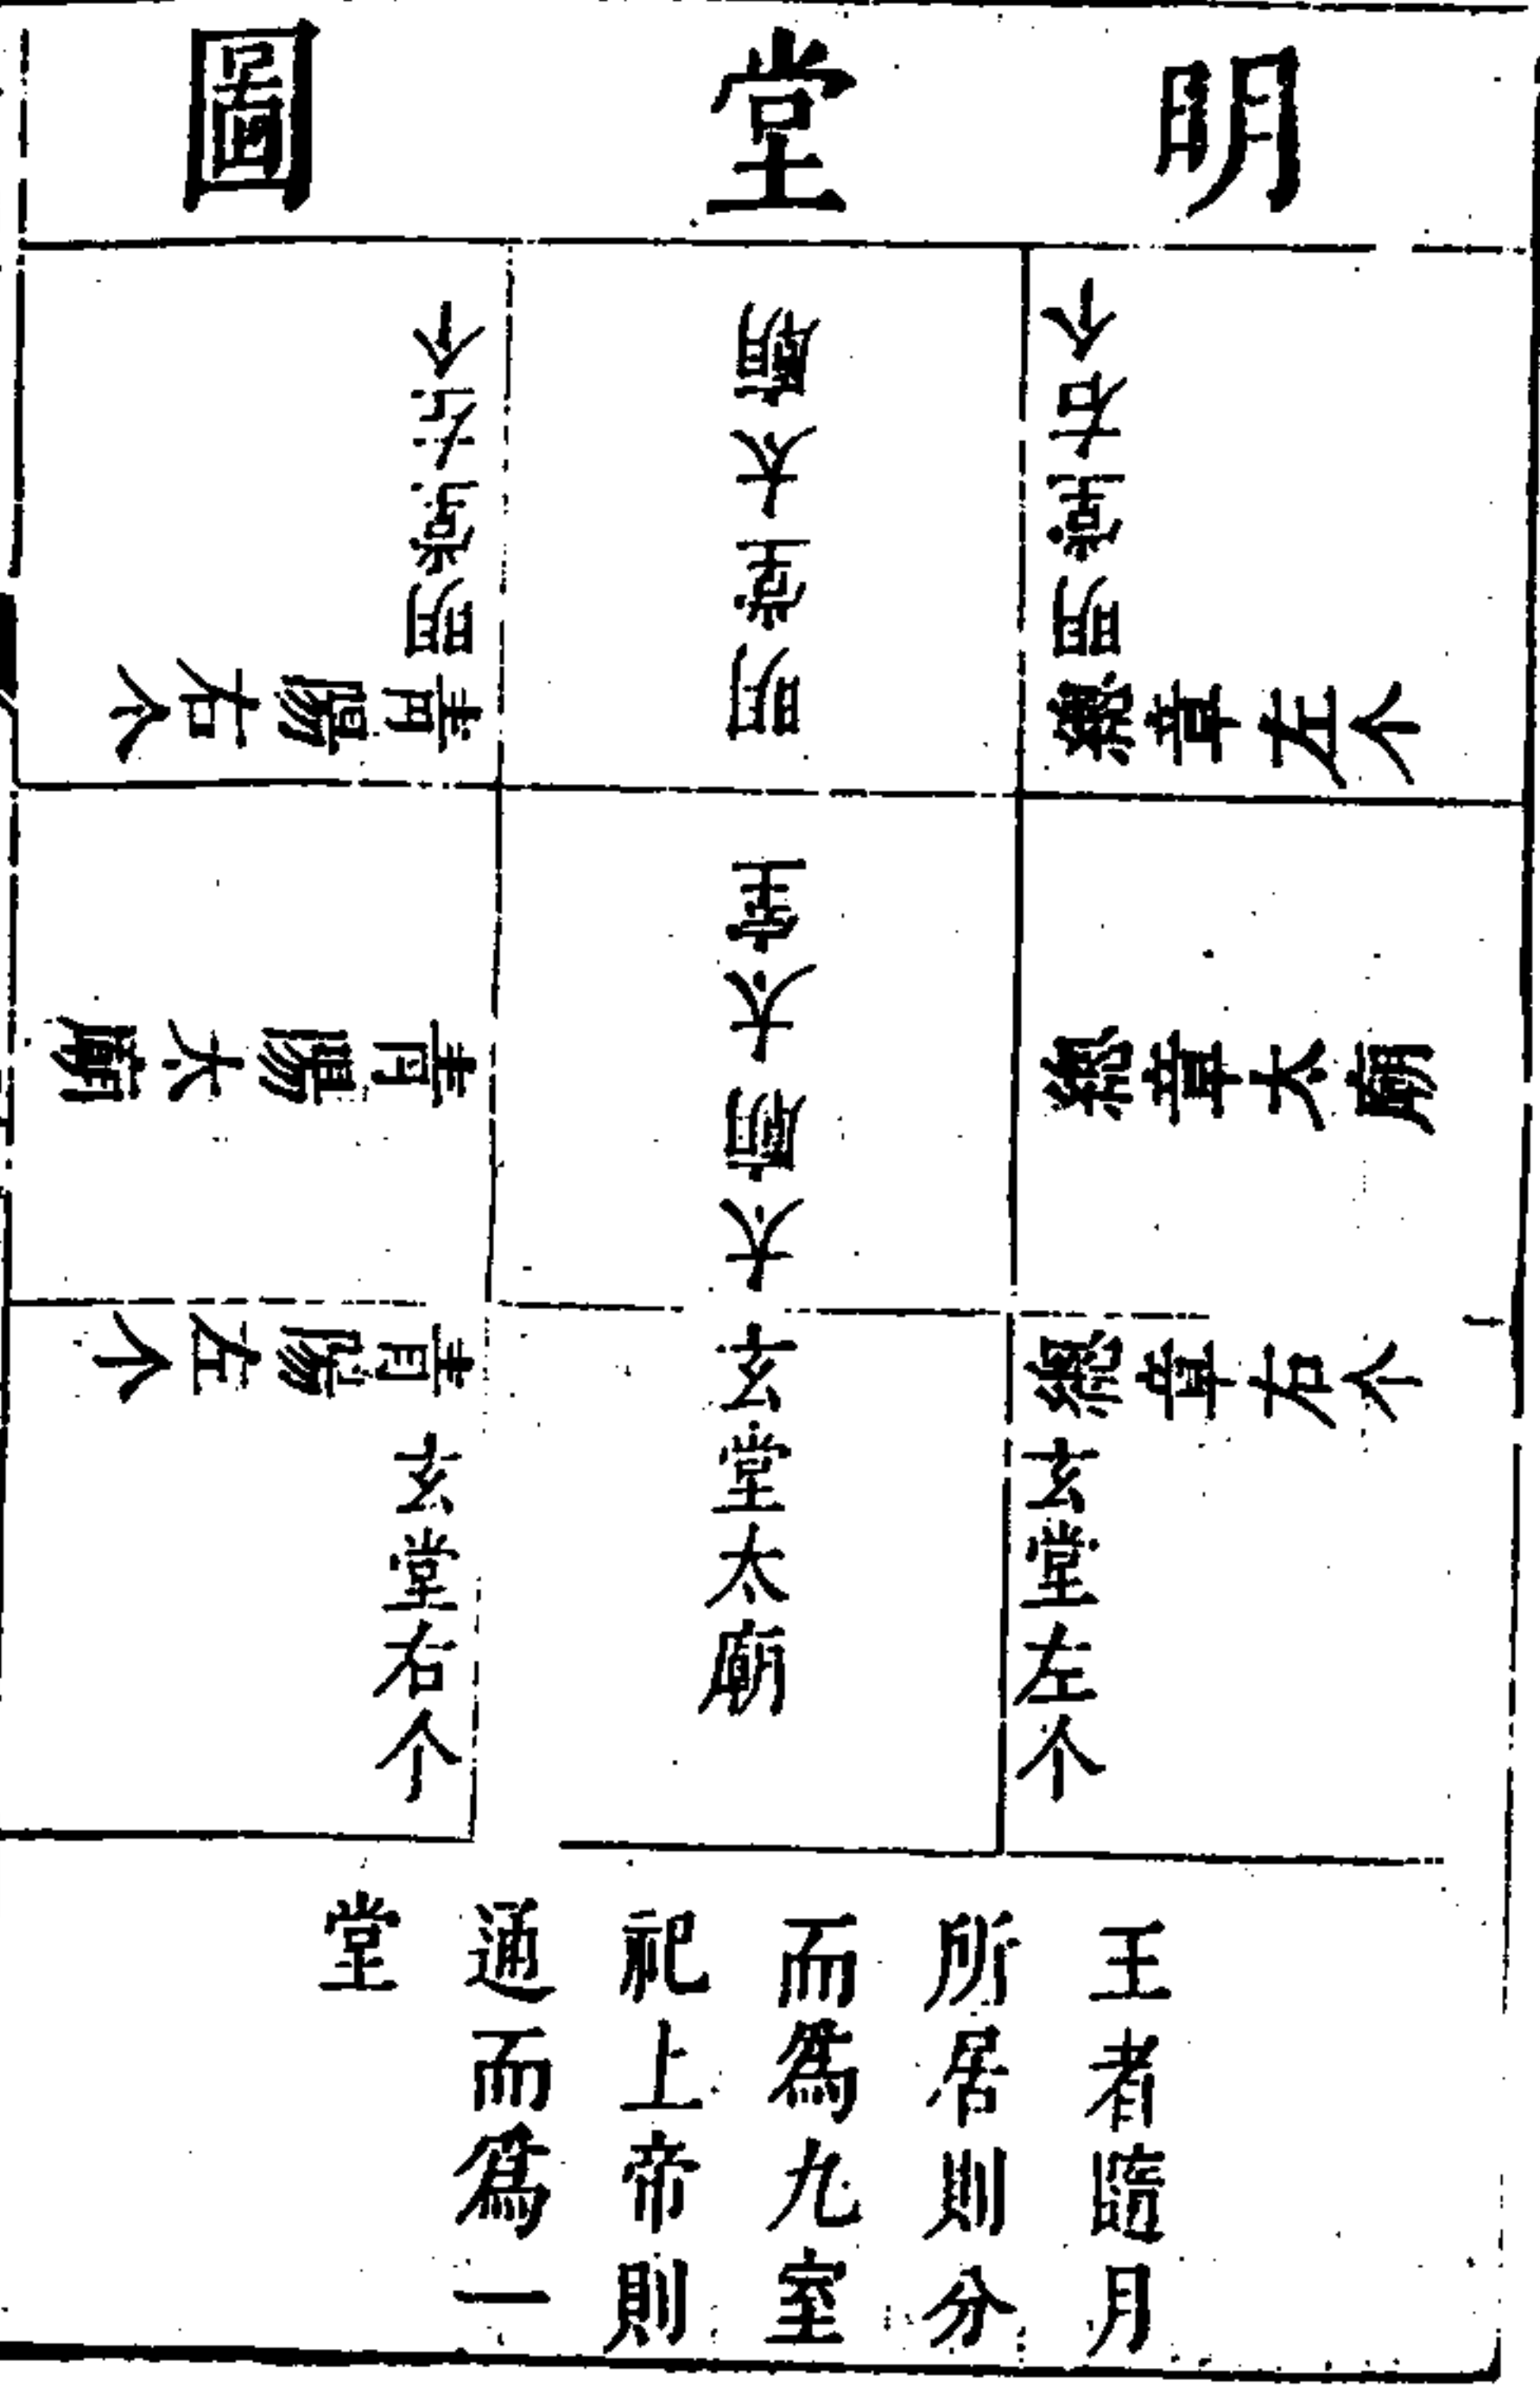 明堂圖
明堂右个
總章左个
明堂太廟
明堂左个
青陽右个
總章太廟
太廟太室
青陽太廟
總章右个
玄堂左个
玄堂太廟
青陽左个
玄堂右个
王者隨月
所居則分
而爲九室
祀上帝則
通而爲一
堂